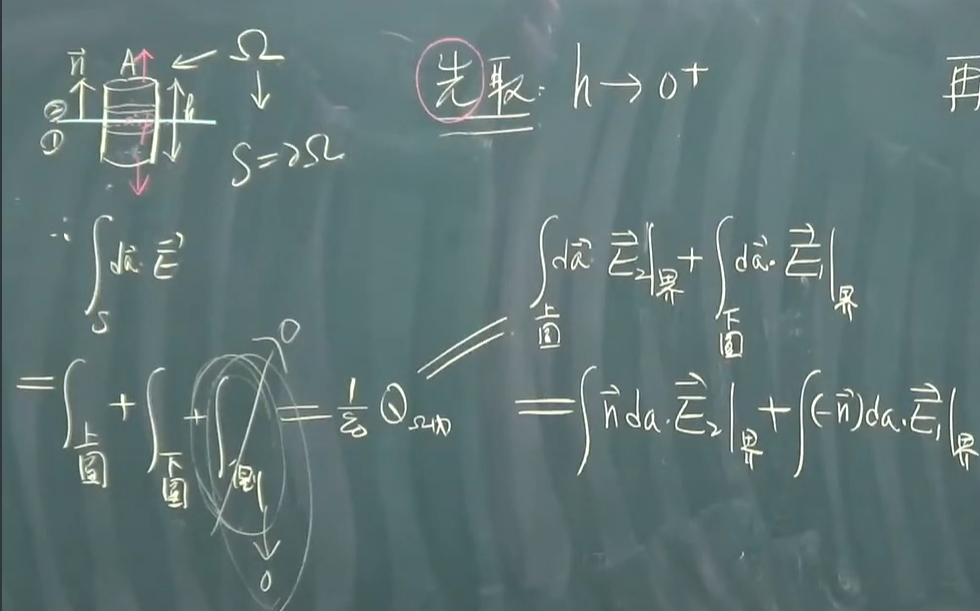 n⃗ A Ω
② h
①
S=∂Ω
先取: h→0⁺
再
∴ ∫_S da⃗·E⃗
=∫_上圆 + ∫_下圆 + ∫_侧 = 1/ε₀ Q_Ω内
0
0
∫_上圆 da⃗·E⃗₂|_界 + ∫_下圆 da⃗·E⃗₁|_界
=∫n⃗da·E⃗₂|_界 + ∫(-n⃗)da·E⃗₁|_界